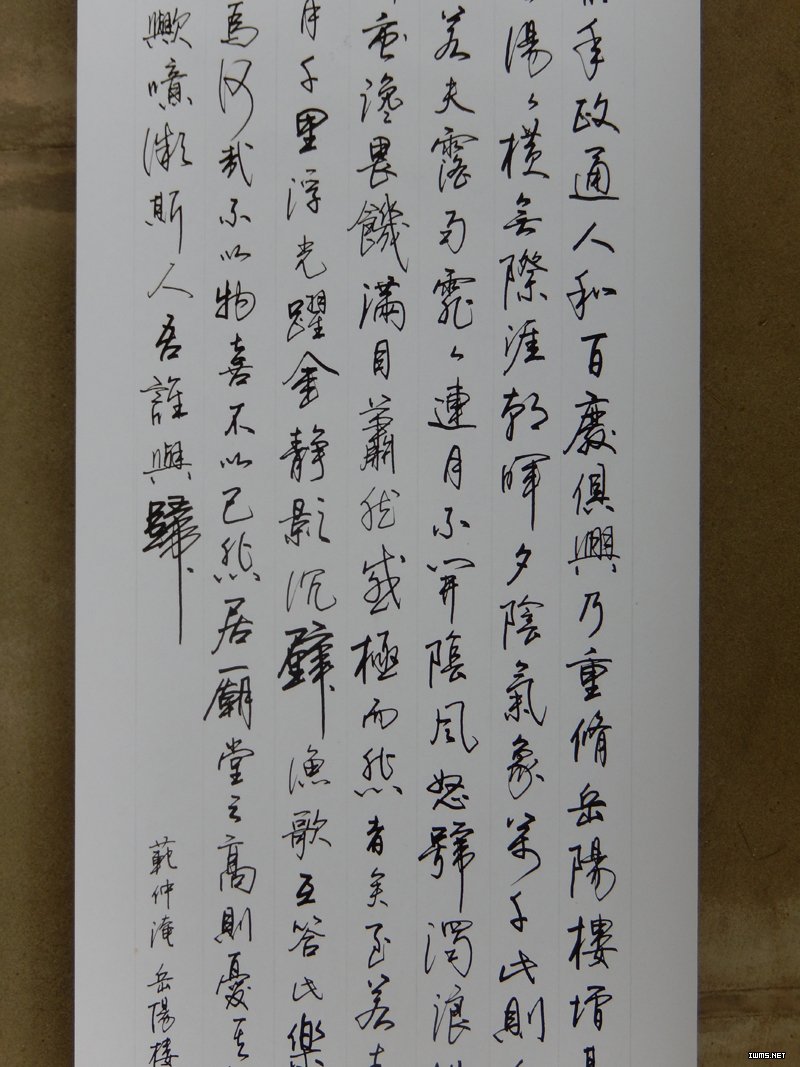 年政通人和百廢俱興乃重脩岳陽樓增
湯々横無際涯朝暉夕陰氣象萬千此則
若夫霪雨霏々連月不開陰風怒號濁浪
讒畏饑滿目蕭然感極而然者矣至若春
月千里浮光躍金静影沉璧漁歌互答此樂
焉何哉不以物喜不以己然居廟堂之高則憂其
歟噫微斯人吾誰與歸
範仲淹岳陽樓
IWMS.NET